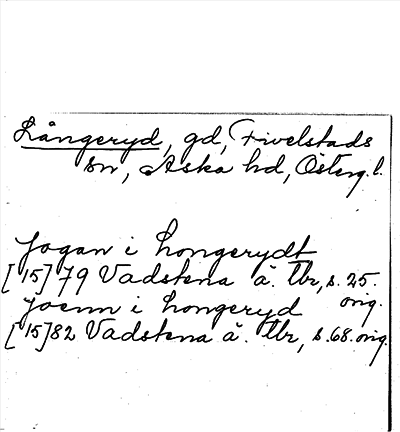 Långeryd, gd, Fivelstads
sn, Aska hd, Österg. l.
Jogan i hongerydt
[15]79 Vadstena ä. tbr, s. 25.
orig.
Joenn i hongeryd
[15]82 Vadstena ä. tbr, s. 68. orig.